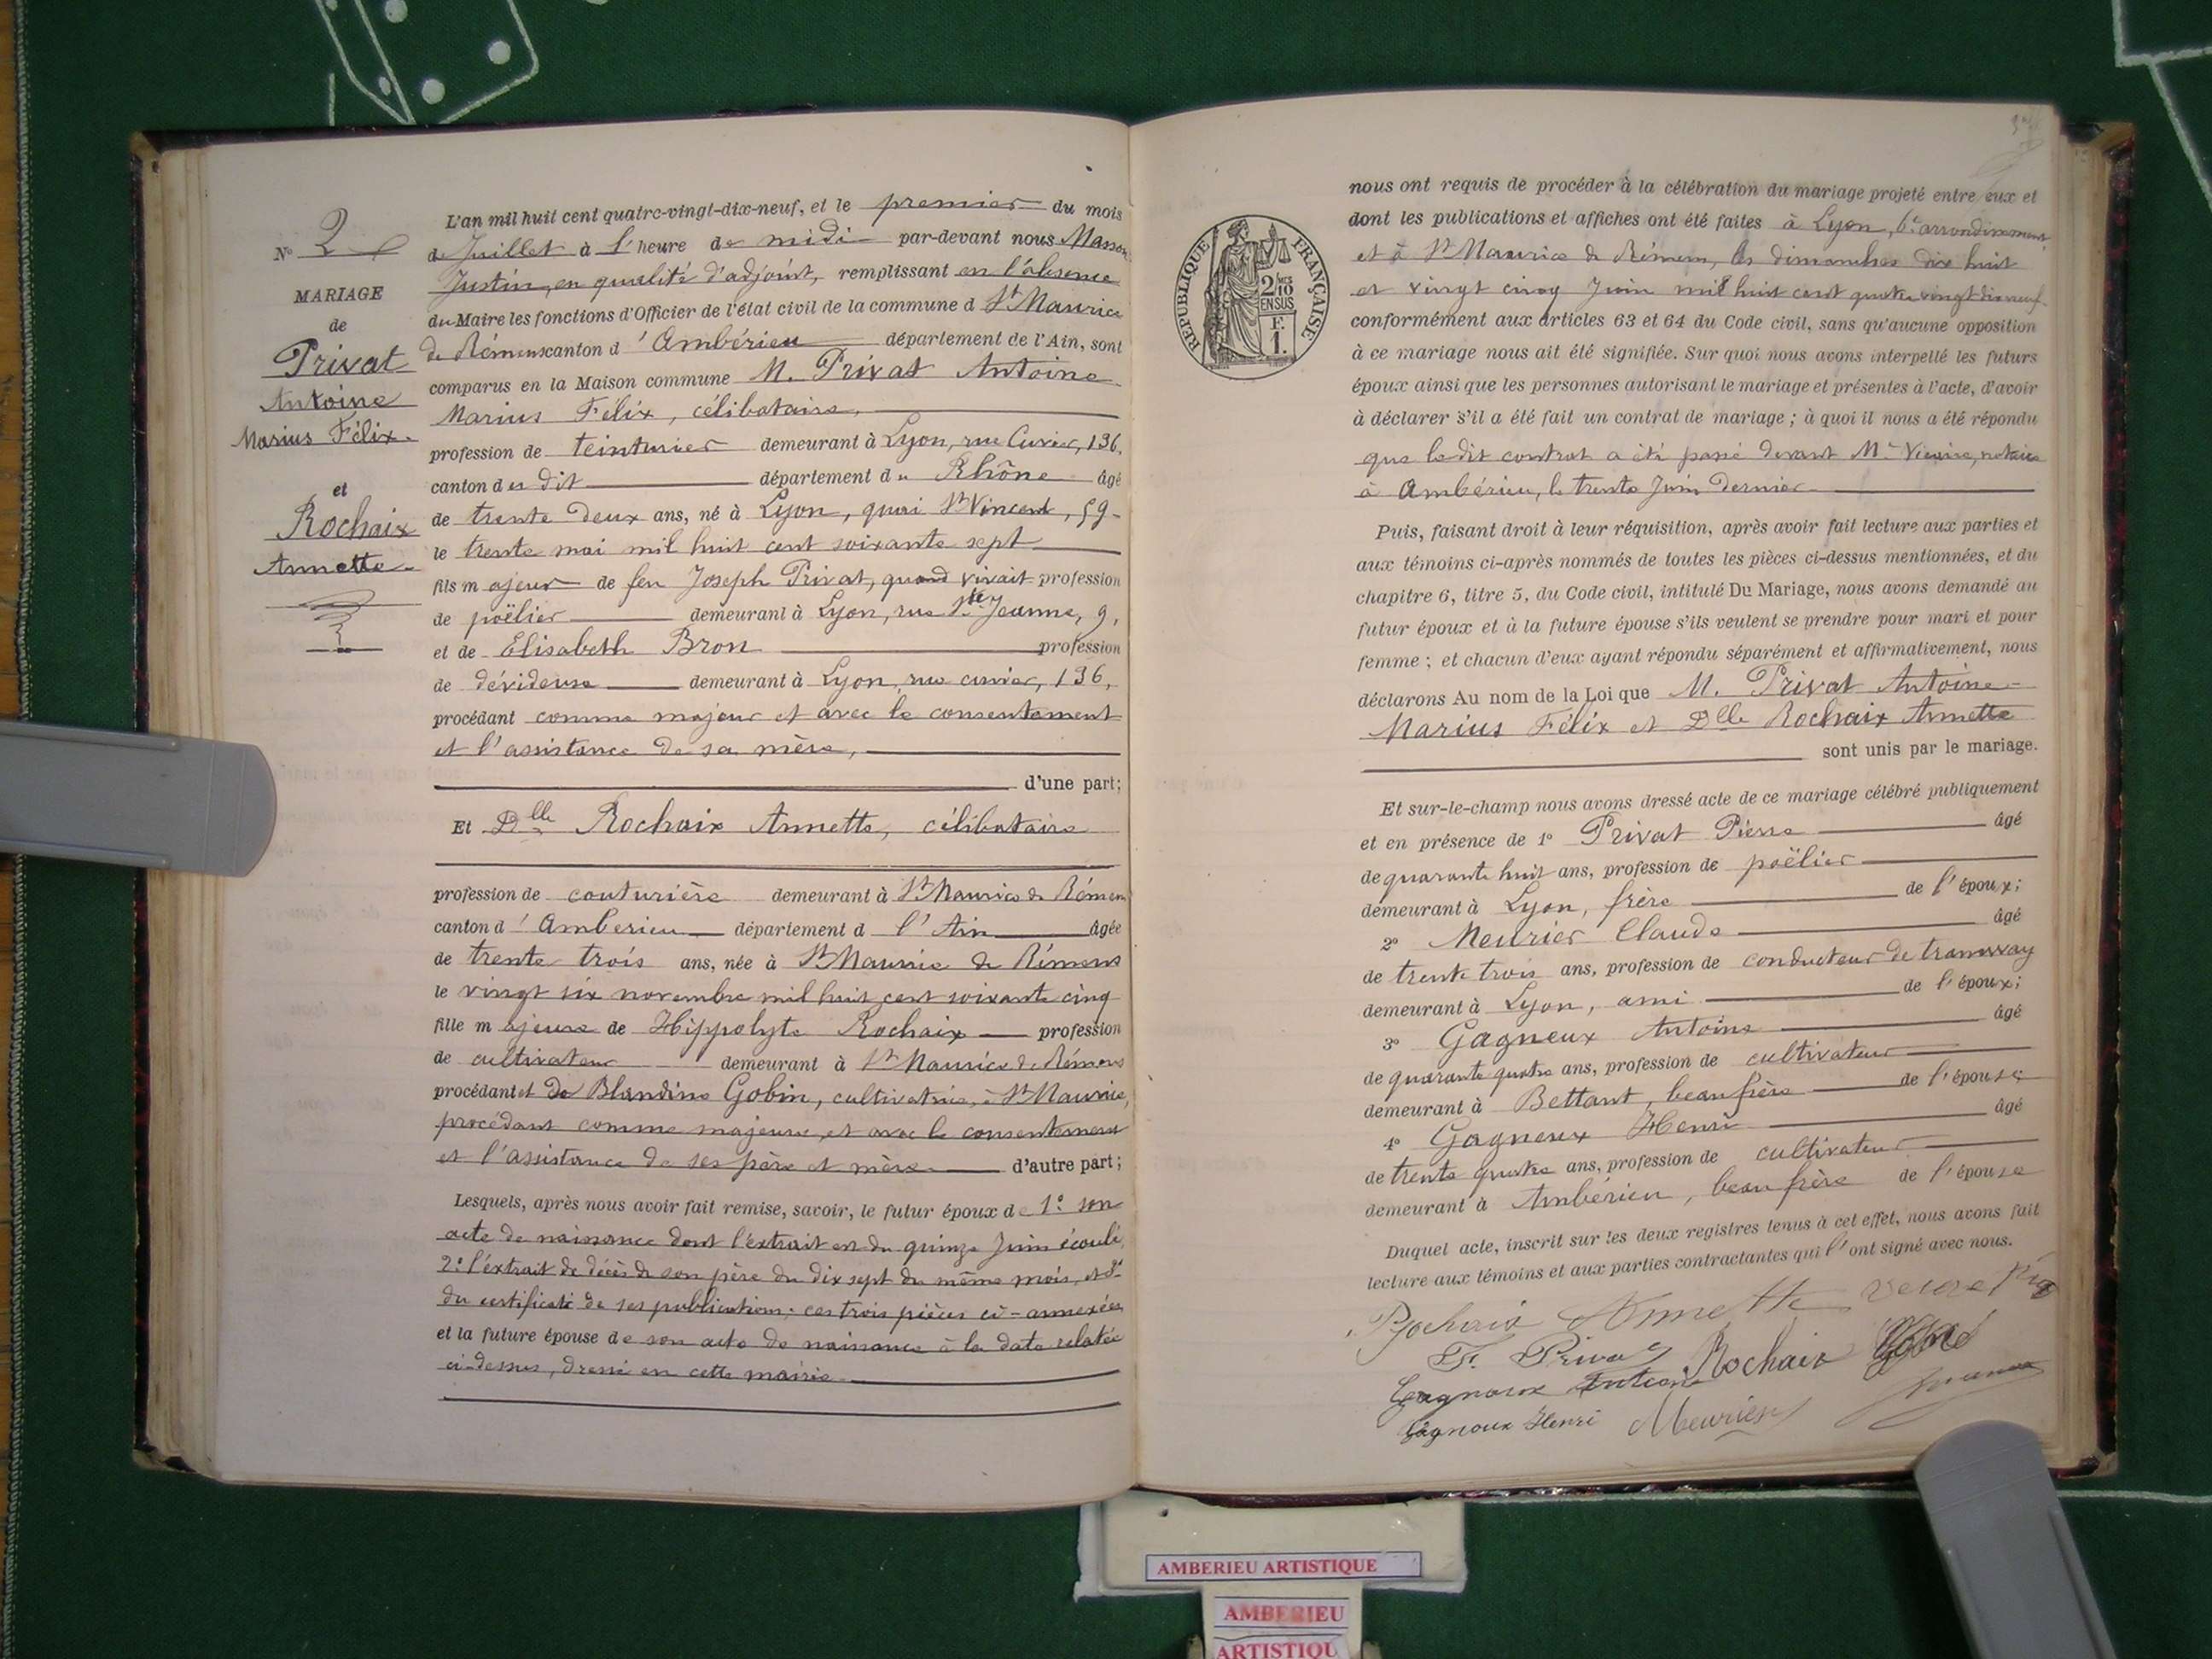 N° 2
MARIAGE
de
Privat
Antoine
Marius Félix.
et
Rochaix
Annette.
L'an mil huit cent quatre-vingt-dix-neuf, et le premier du mois
de Juillet à l'heure de midi par-devant nous Masson
Justin, en qualité d'adjoint, remplissant en l'absence
du Maire les fonctions d'Officier de l'état civil de la commune d St Maurice
de Rémens canton d'Ambérieu département de l'Ain, sont
comparus en la Maison commune M. Privat Antoine
Marius Félix, célibataire,
profession de teinturier demeurant à Lyon, rue Cuvier, 136,
canton du dit département du Rhône âgé
de trente deux ans, né à Lyon, quai St Vincent, 59
le trente mai mil huit cent soixante sept
fils majeur de feu Joseph Privat, quand vivait profession
de poëlier demeurant à Lyon, rue Ste Jeanne, 9,
et de Elisabeth Bron profession
de dévideuse demeurant à Lyon, rue cuvier, 136,
procédant comme majeur et avec le consentement
et l'assistance de sa mère,
d'une part;
Et Dlle Rochaix Annette, célibataire
profession de couturière demeurant à St Maurice de Rémens
canton d'Amberieu département d l'Ain âgée
de trente trois ans, née à St Maurice de Rémens
le vingt six novembre mil huit cent soixante cinq
fille majeure de Hippolyte Rochaix profession
de cultivateur demeurant à St Maurice de Rémens
procédant et de Blandine Gobin, cultivatrice, à St Maurice,
procédant comme majeure, et avec le consentement
et l'assistance de ses père et mère. d'autre part;
Lesquels, après nous avoir fait remise, savoir, le futur époux de 1° son
acte de naissance dont l'extrait est du quinze Juin écoulé,
2° l'extrait de décès de son père du dix sept du même mois, et 3°
du certificat de ses publications; ces trois pièces ci-annexées
et la future épouse de son acte de naissance à la date relatée
ci-dessus, dressé en cette mairie.
RÉPUBLIQUE FRANÇAISE
2/10 EN SUS
F. 1.
nous ont requis de procéder à la célébration du mariage projeté entre eux et
dont les publications et affiches ont été faites à Lyon, 6e arrondissement,
et à St Maurice de Rémens, les dimanches dix huit
et vingt cinq Juin mil huit cent quatre vingt dix neuf
conformément aux articles 63 et 64 du Code civil, sans qu'aucune opposition
à ce mariage nous ait été signifiée. Sur quoi nous avons interpellé les futurs
époux ainsi que les personnes autorisant le mariage et présentes à l'acte, d'avoir
à déclarer s'il a été fait un contrat de mariage; à quoi il nous a été répondu
que le dit contrat a été passé devant Me notaire
à Ambérieu, le trente Juin dernier
Puis, faisant droit à leur réquisition, après avoir fait lecture aux parties et
aux témoins ci-après nommés de toutes les pièces ci-dessus mentionnées, et du
chapitre 6, titre 5, du Code civil, intitulé Du Mariage, nous avons demandé au
futur époux et à la future épouse s'ils veulent se prendre pour mari et pour
femme; et chacun d'eux ayant répondu séparément et affirmativement, nous
déclarons Au nom de la Loi que M. Privat Antoine
Marius Félix et Dlle Rochaix Annette
sont unis par le mariage.
Et sur-le-champ nous avons dressé acte de ce mariage célébré publiquement
et en présence de 1° Privat Pierre âgé
de quarante huit ans, profession de poëlier
demeurant à Lyon, frère de l'époux;
2° Meurier Claude âgé
de trente trois ans, profession de conducteur de tramway
demeurant à Lyon, ami de l'époux;
3° Gagneux Antoine âgé
de quarante quatre ans, profession de cultivateur
demeurant à Bettant, beau frère de l'épouse;
4° Gagneux Henri âgé
de trente quatre ans, profession de cultivateur
demeurant à Ambérieu, beau frère de l'épouse
Duquel acte, inscrit sur les deux registres tenus à cet effet, nous avons fait
lecture aux témoins et aux parties contractantes qui l'ont signé avec nous.
Rochaix Annette veuve
F. Privat Rochaix
Gagneux Antoine
Gagneux Henri Meurier
AMBERIEU ARTISTIQUE
AMBERIEU
ARTISTIQU